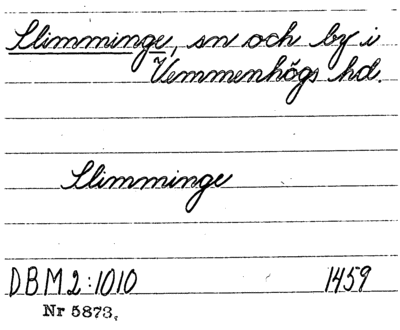 Slimminge, sn och by i
Vemmenhögs hd.
Slimminge
DBM2:1010 1459
Nr 5873,